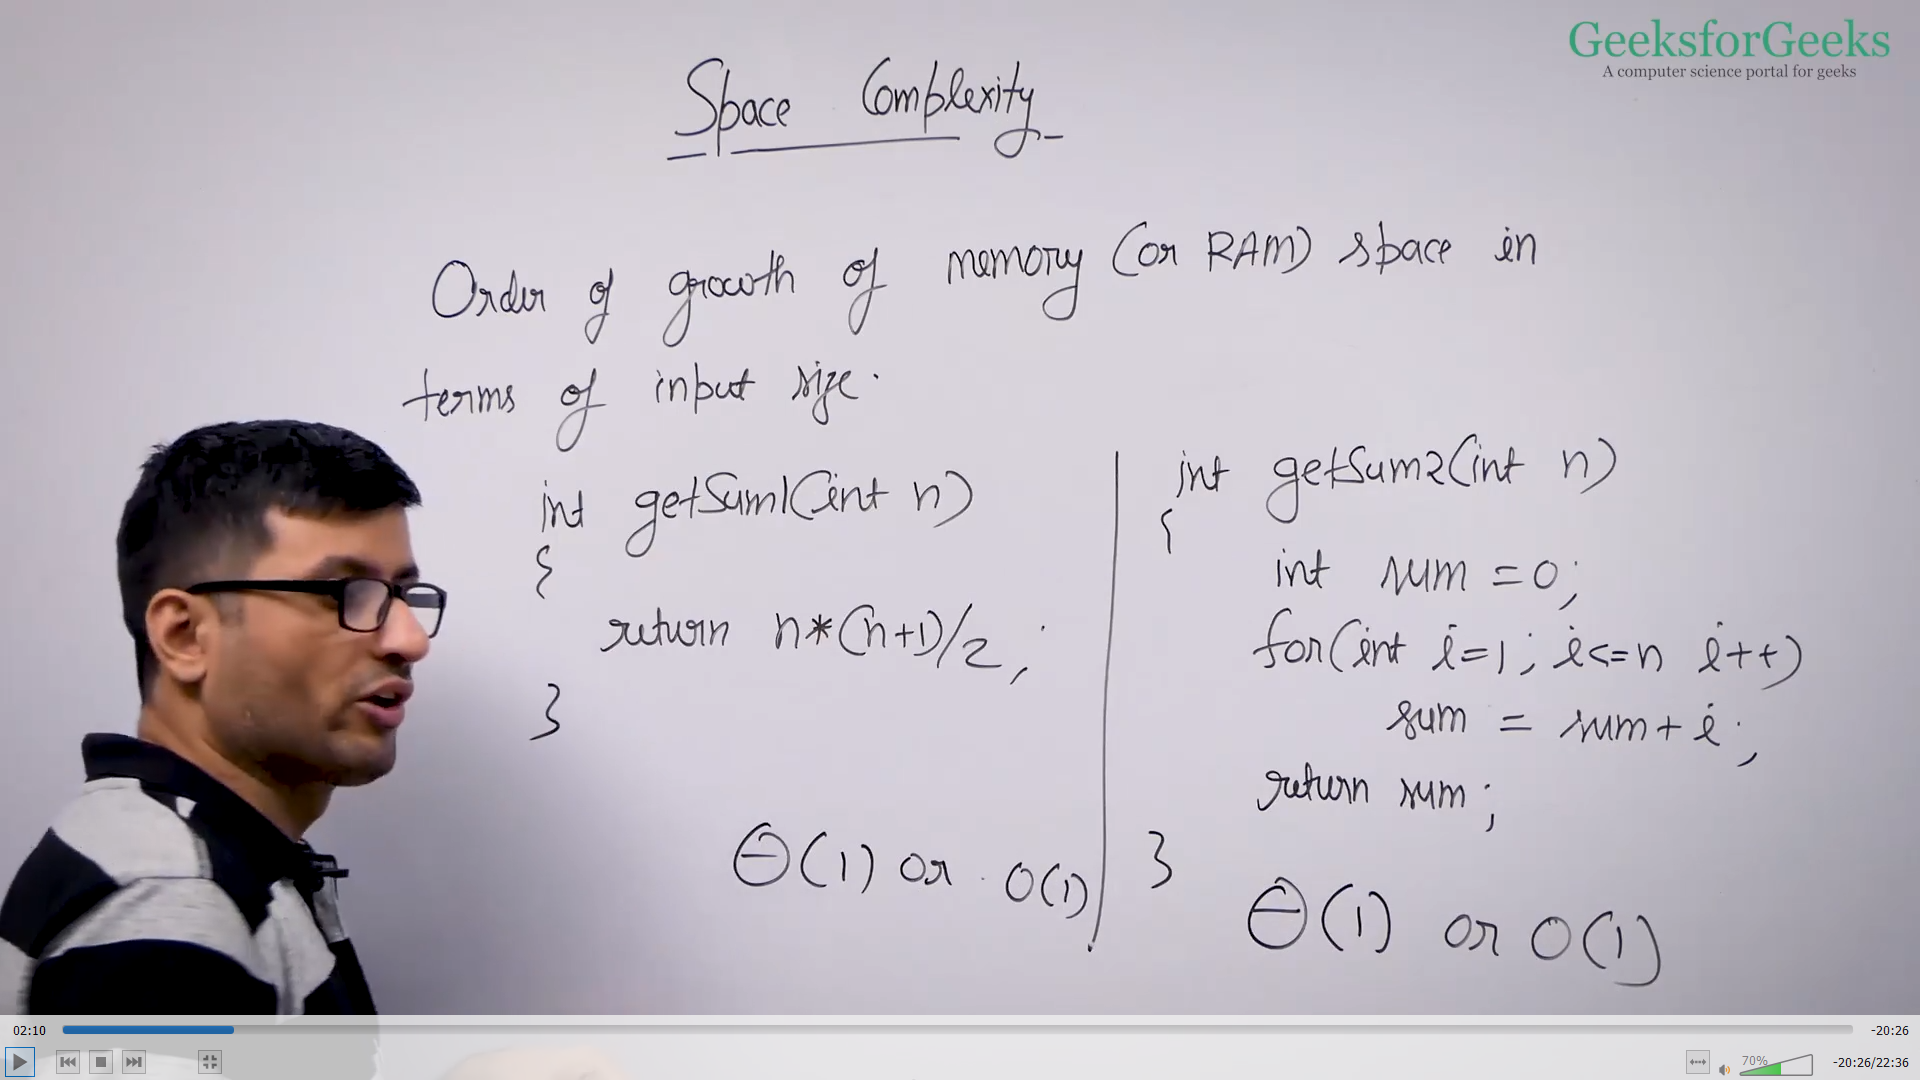 GeeksforGeeks
A computer science portal for geeks
Space Complexity
Order of growth of memory (or RAM) space in
terms of input size.
int getSum1(int n)
{
return n*(n+1)/2;
}
Θ(1) or O(1)
int getSum2(int n)
{
int sum = 0;
for(int i=1; i<=n i++)
sum = sum + i;
return sum;
}
Θ(1) or O(1)
02:10
-20:26
70%
-20:26/22:36